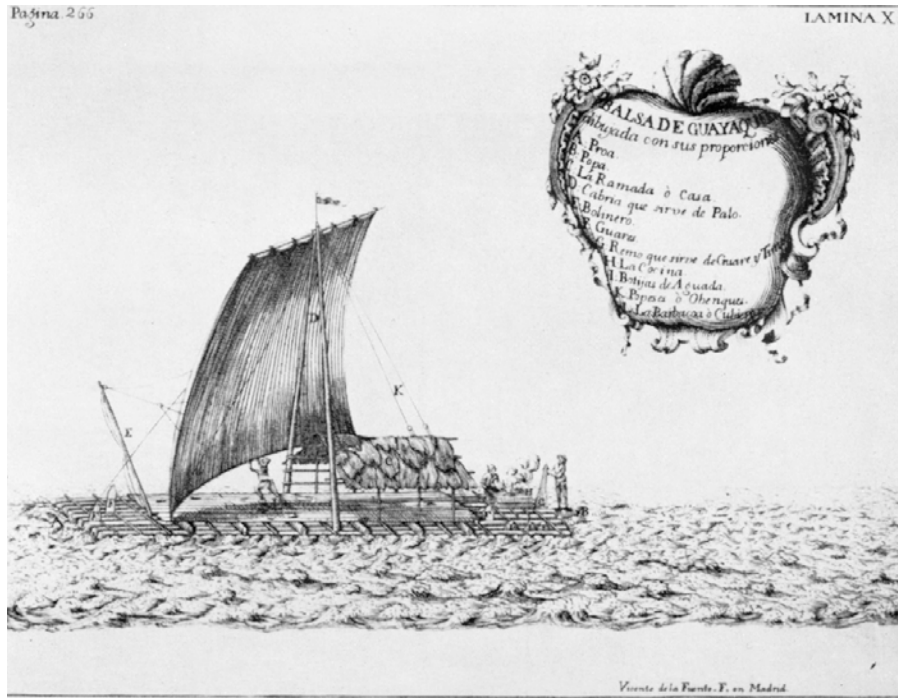 Pagina. 266
LAMINA X
BALSA DE GUAYAQUIL
dibujada con sus proporciones
A. Proa.
B. Popa.
C. La Ramada ò Casa.
D. Cabria que sirve de Palo.
E. Bolinero.
F. Guares.
G. Remo que sirve de Guare y
H. La Cocina.
I. Botijas de Aguada.
K. Popeses ò Obenques.
L. La Barbacoa ò Cubierta
D
K
E
Vicente de la Fuente. F. en Madrid.